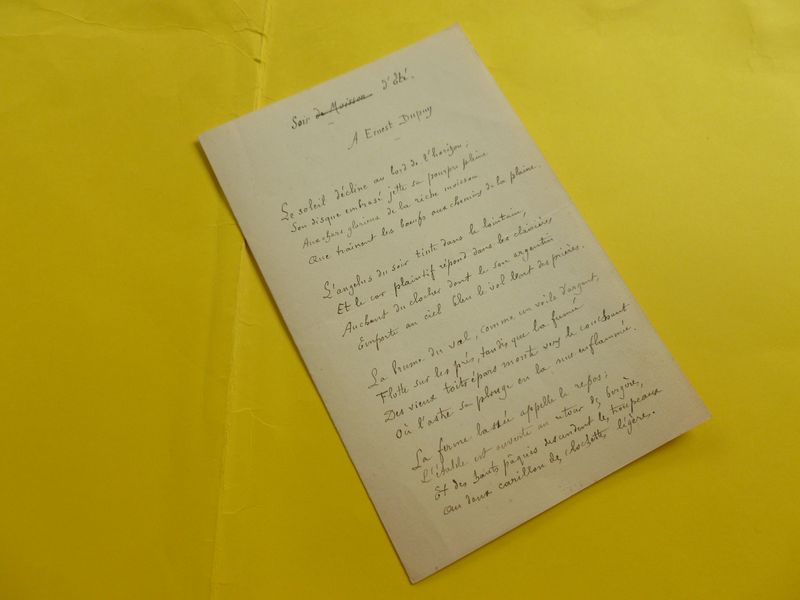 Soir de Moisson d'été.
A Ernest Dupuy
Le soleil décline au bord de l'horizon ;
Son disque embrasé jette sa pourpre pleine
Aux chars glorieux de la riche moisson
Que traînent les bœufs aux chemins de la plaine.
L'angelus du soir tinte dans le lointain,
Et le cor plaintif répond dans les clairières
Au chant du clocher dont le son argentin
Emporte au ciel bleu le vol lent des prières.
La brume du val, comme un voile d'argent,
Flotte sur les prés, tandis que la fumée
Des vieux toits épars monte vers le couchant
Où l'astre se plonge en la nue enflammée.
La ferme lassée appelle le repos ;
L'étable est ouverte au retour des bergère,
Et des hauts pâquis descendent les troupeaux
Au doux carillon des clochettes légères.